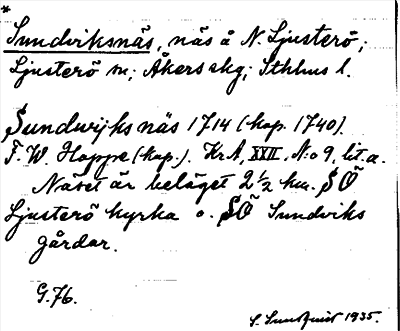 *
Sundviksnäs, näs å N. Ljusterö;
Ljusterö sn; Åkers skg; Sthlms l.
Sundwijks näs 1714 (kop. 1740).
F. W. Hoppe (kop.). KrA, XXII, N:o 9, lit. a.
Näset är beläget 2 1/2 km. SÖ
Ljusterö kyrka o. SÖ Sundviks
gårdar.
G. 76.
S. Sundquist 1935.